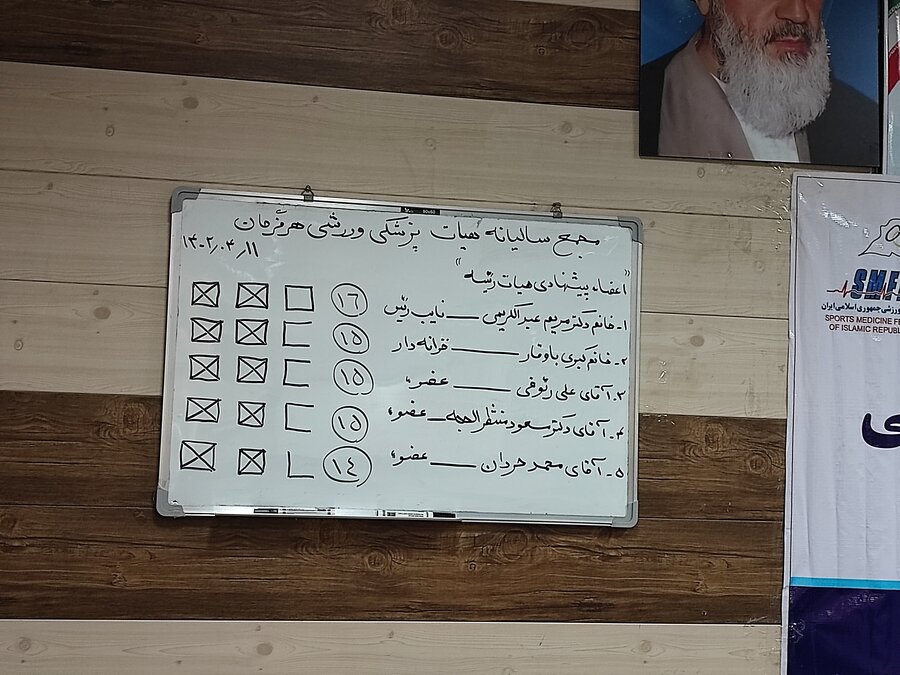 مجمع سالیانه هیات پزشکی ورزشی هرمزگان
۱۴۰۲/۰۴/۱۱
"اعضاء پیشنهادی هیات رئیسه"
۱- خانم دکتر مریم عبدالکریمی — نایب رئیس ۱۶
۲- خانم کبری باوقار — خزانه دار ۱۵
۳- آقای علی رئوفی — عضو ۱۵
۴- آقای دکتر مسعود منتظر الحجه — عضو ۱۵
۵- آقای محمد خردان — عضو ۱۴
SMF
ورزشی جمهوری اسلامی ایران
SPORTS MEDICINE FE
OF ISLAMIC REPUBL
ی